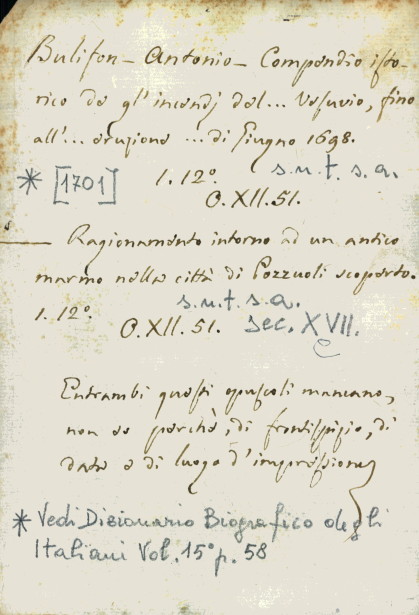 Bulifon - Antonio - Compendio isto-
rico de gl'incendj del... Vesuvio, fino
all'... eruzione ... di Giugno 1698.
* [1701] 1. 12º. s.n.t. s.a.
O.XII.51.
— Ragionamento intorno ad un antico
marmo nella città di Pozzuoli scoperto.
s.n.t. s.a.
1. 12º. O.XII.51. sec. XVII.
Entrambi questi opuscoli mancano,
non so perchè, di frontispizio, di
data e di luogo d'impressione
* Vedi Dizionario Biografico degli
Italiani Vol. 15º p. 58